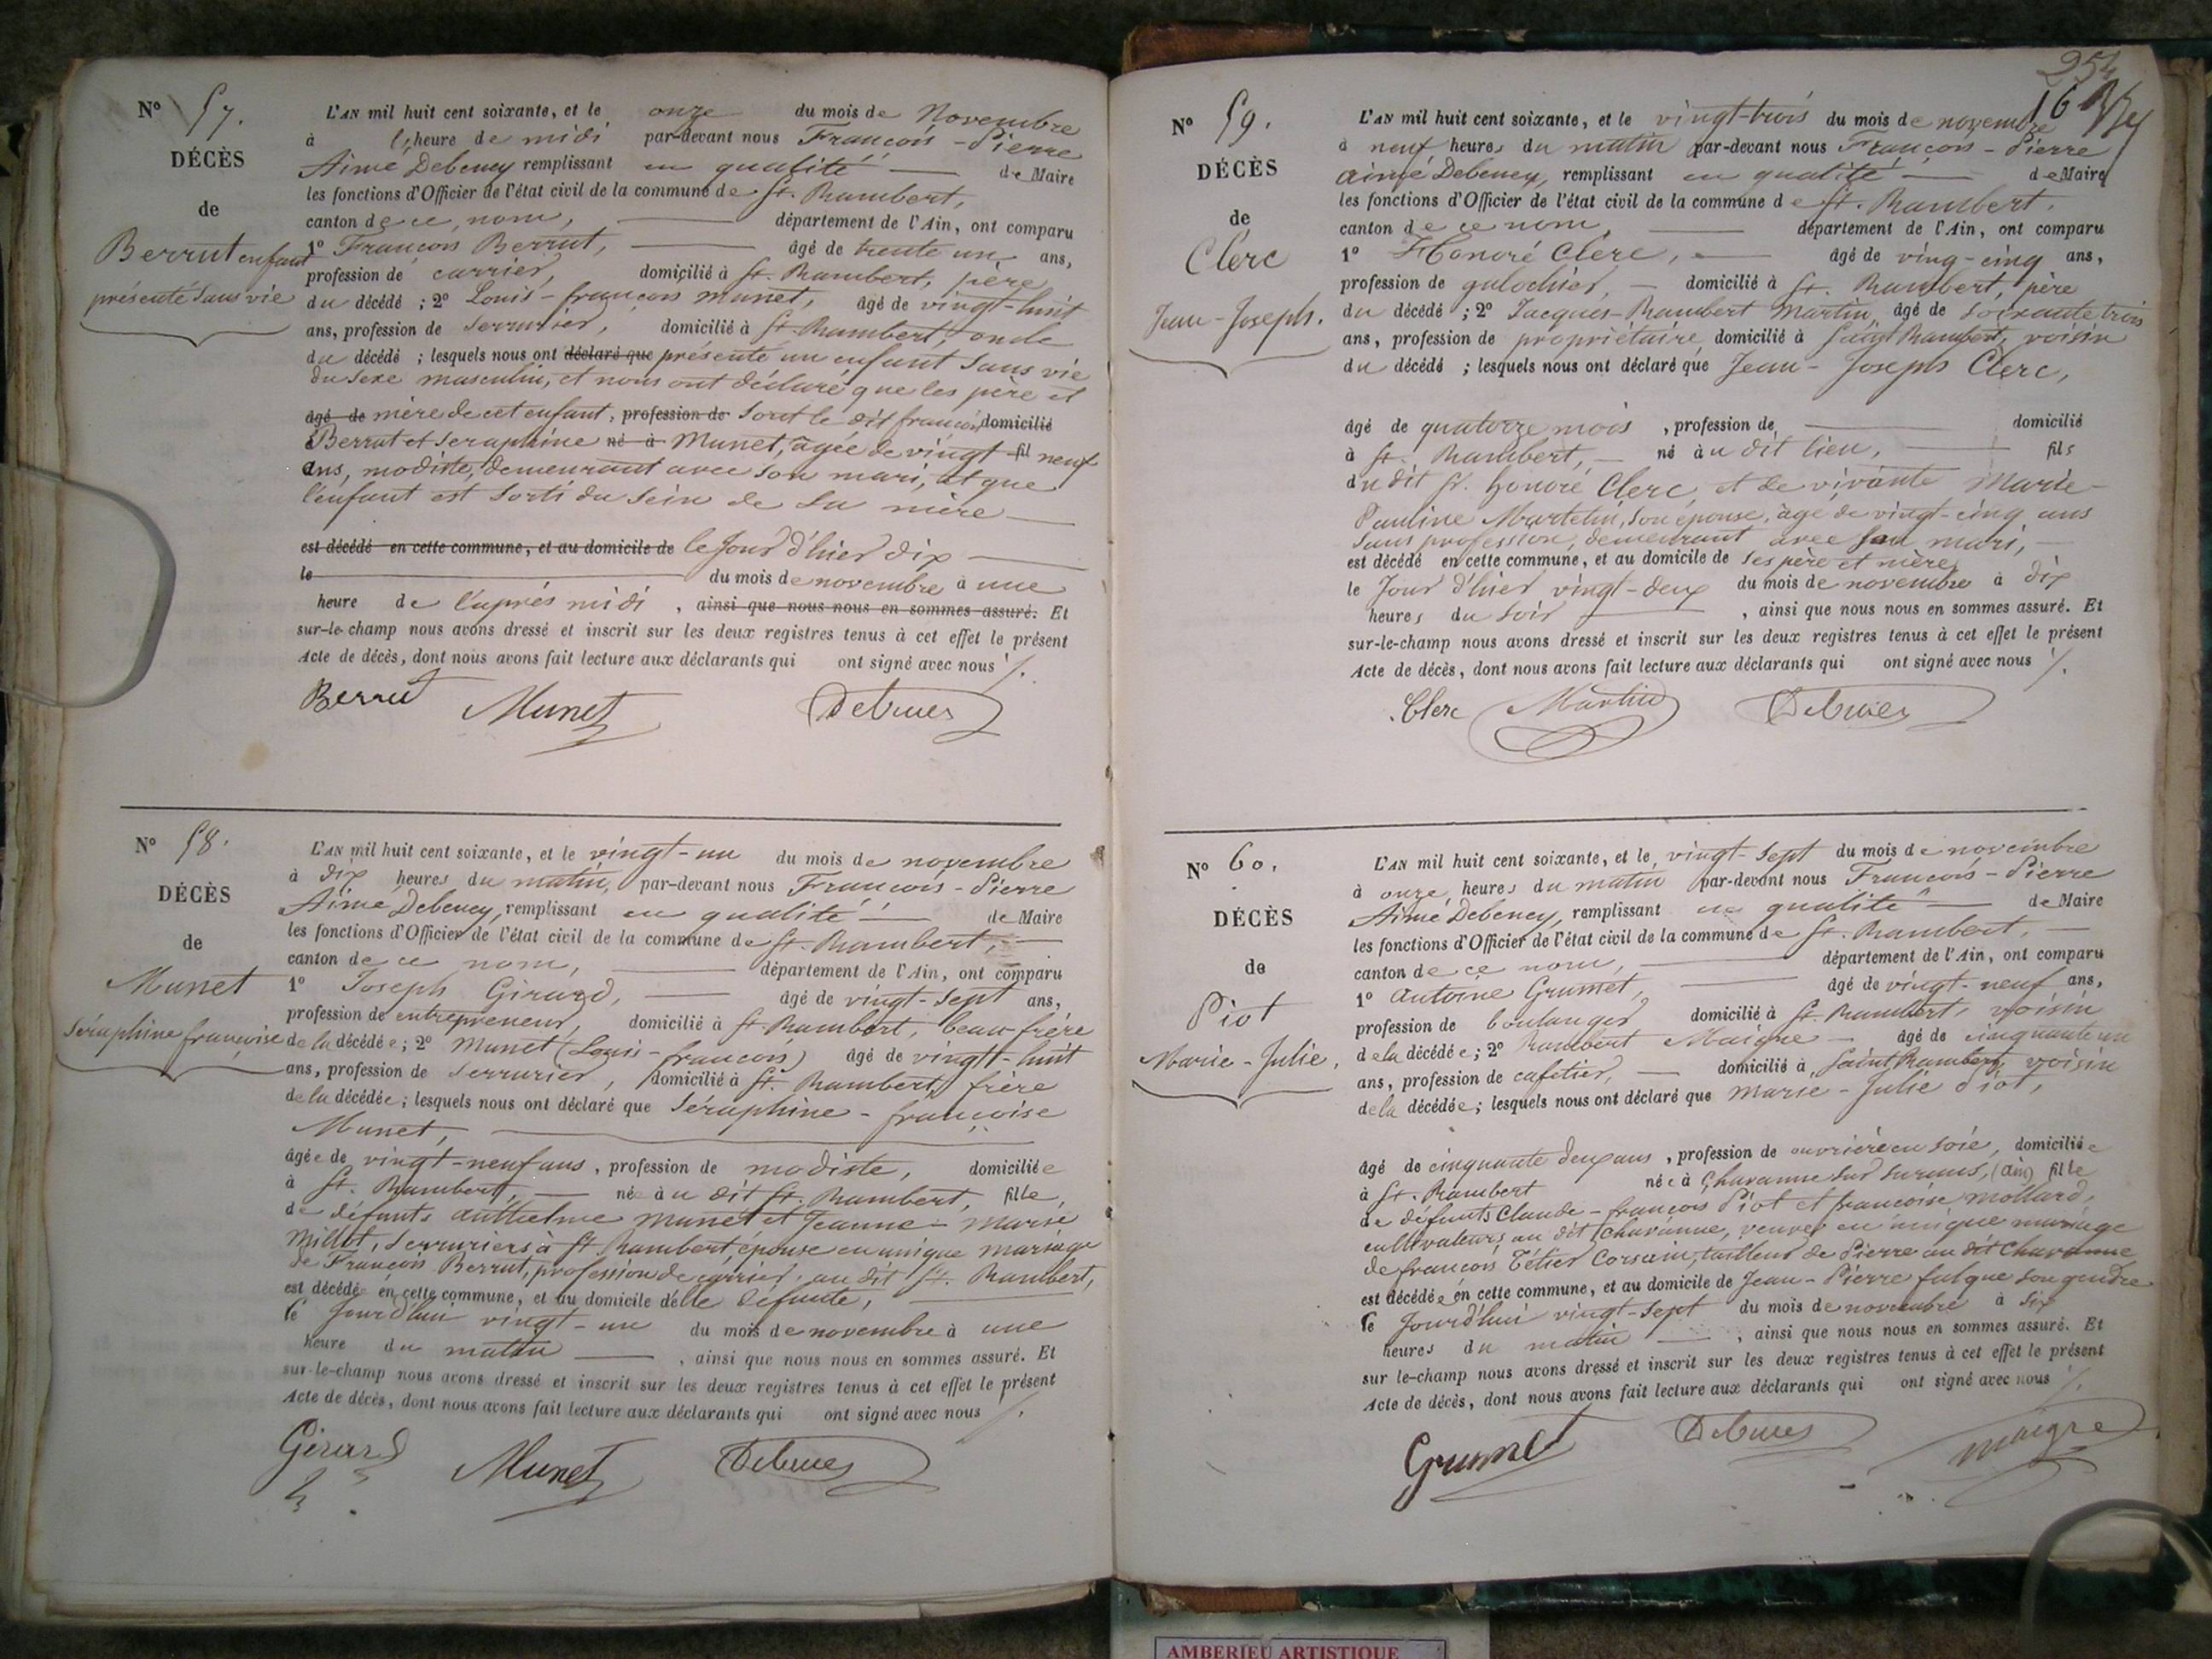 Nº 57.
DÉCÈS
de
Berrut enfant
présenté sans vie
L'AN mil huit cent soixante, et le onze du mois de Novembre
à l'heure de midi par-devant nous François-Pierre
Aimé Debeney remplissant en qualité de Maire
les fonctions d'Officier de l'état civil de la commune de St. Rambert,
canton de ce nom, département de l'Ain, ont comparu
1º François Berrut, âgé de trente un ans,
profession de carrier, domicilié à St. Rambert, père
du décédé ; 2º Louis-françois Munet, âgé de vingt-huit
ans, profession de serrurier, domicilié à St. Rambert, oncle
du décédé ; lesquels nous ont déclaré que présenté un enfant sans vie
du sexe masculin, et nous ont déclaré que les père et
âgé de mère de cet enfant, profession de sont le dit françois domicilié
à Berrut et Seraphine né à Munet, âgée de vingt fil neuf
ans, modiste, demeurant avec son mari, et que
l'enfant est sorti du sein de sa mère
est décédé en cette commune, et au domicile de le jour d'hier dix
le du mois de novembre à une
heure de l'après midi , ainsi que nous nous en sommes assuré. Et
sur-le-champ nous avons dressé et inscrit sur les deux registres tenus à cet effet le présent
Acte de décès, dont nous avons fait lecture aux déclarants qui ont signé avec nous ./.
Berrut Munet Debeney
Nº 58.
DÉCÈS
de
Munet
Séraphine françoise
L'AN mil huit cent soixante, et le vingt-un du mois de novembre
à dix heures du matin, par-devant nous François-Pierre
Aimé Debeney, remplissant en qualité de Maire
les fonctions d'Officier de l'état civil de la commune de St. Rambert,
canton de ce nom, département de l'Ain, ont comparu
1º Joseph Girard, âgé de vingt-sept ans,
profession de entrepreneur, domicilié à St. Rambert, beau-frère
de la décédée ; 2º Munet (Louis-françois) âgé de vingt-huit
ans, profession de serrurier, domicilié à St. Rambert, frère
de la décédée ; lesquels nous ont déclaré que Séraphine-françoise
Munet,
âgée de vingt-neuf ans, profession de modiste, domiciliée
à St. Rambert, née à u dit St. Rambert, fille,
de défunts Anthelme Munet et Jeanne-Marie
Millet, serruriers à St Rambert, épouse en unique mariage
de François Berrut, profession de carrier, au dit St. Rambert,
est décédée en cette commune, et au domicile d'elle défunte,
le jourd'hui vingt-un du mois de novembre à une
heure du matin , ainsi que nous nous en sommes assuré. Et
sur-le-champ nous avons dressé et inscrit sur les deux registres tenus à cet effet le présent
Acte de décès, dont nous avons fait lecture aux déclarants qui ont signé avec nous ./.
Girard Munet Debeney
254
16
Nº 59.
DÉCÈS
de
Clerc
Jean-Joseph.
L'AN mil huit cent soixante, et le vingt-trois du mois de novembre
à neuf heures du matin par-devant nous François-Pierre
aimé Debeney, remplissant en qualité de Maire
les fonctions d'Officier de l'état civil de la commune de St. Rambert,
canton de ce nom, département de l'Ain, ont comparu
1º Honoré Clerc, âgé de ving-cinq ans,
profession de galochier, domicilié à St. Rambert, père
du décédé ; 2º Jacques-Rambert Martin, âgé de soixante trois
ans, profession de propriétaire, domicilié à Saint Rambert, voisin
du décédé ; lesquels nous ont déclaré que Jean-Joseph Clerc,
âgé de quatorze mois , profession de domicilié
à St. Rambert, né à u dit lieu, fils
du dit Sr. honoré Clerc, et de vivante Marie-
Pauline Martelin, son épouse, âgé de vingt-cinq ans
sans profession, demeurant avec son mari,
est décédé en cette commune, et au domicile de ses père et mère
le jour d'hier vingt-deux du mois de novembre à dix
heures du soir , ainsi que nous nous en sommes assuré. Et
sur-le-champ nous avons dressé et inscrit sur les deux registres tenus à cet effet le présent
Acte de décès, dont nous avons fait lecture aux déclarants qui ont signé avec nous ./.
Clerc Martin Debeney
Nº 60.
DÉCÈS
de
Piot
Marie-Julie.
L'AN mil huit cent soixante, et le vingt-sept du mois de novembre
à onze heures du matin par-devant nous François-Pierre
Aimé Debeney, remplissant en qualité de Maire
les fonctions d'Officier de l'état civil de la commune de St. Rambert,
canton de ce nom, département de l'Ain, ont comparu
1º Antoine Grumet, âgé de vingt-neuf ans,
profession de boulanger domicilié à St. Rambert, voisin
de la décédée ; 2º Rambert Maigre âgé de cinquante un
ans, profession de cafetier, domicilié à Saint Rambert, voisin
de la décédée ; lesquels nous ont déclaré que Marie-Julie Piot,
âgé de cinquante deux ans , profession de ouvrière en soie, domiciliée
à St. Rambert née à Chavanne sur suran, (ain) fille
de défunts Claude-françois Piot et françoise Mollard,
cultivateurs au dit Chavanne, veuve en unique mariage
de françois Tétier Corsain, tailleur de Pierre au dit Chavanne
est décédée en cette commune, et au domicile de Jean-Pierre fulque son gendre
le jourd'hui vingt-sept du mois de novembre à six
heures du matin , ainsi que nous nous en sommes assuré. Et
sur le-champ nous avons dressé et inscrit sur les deux registres tenus à cet effet le présent
Acte de décès, dont nous avons fait lecture aux déclarants qui ont signé avec nous ./.
Grumet Debeney Maigre
AMBERIEU ARTISTIQUE